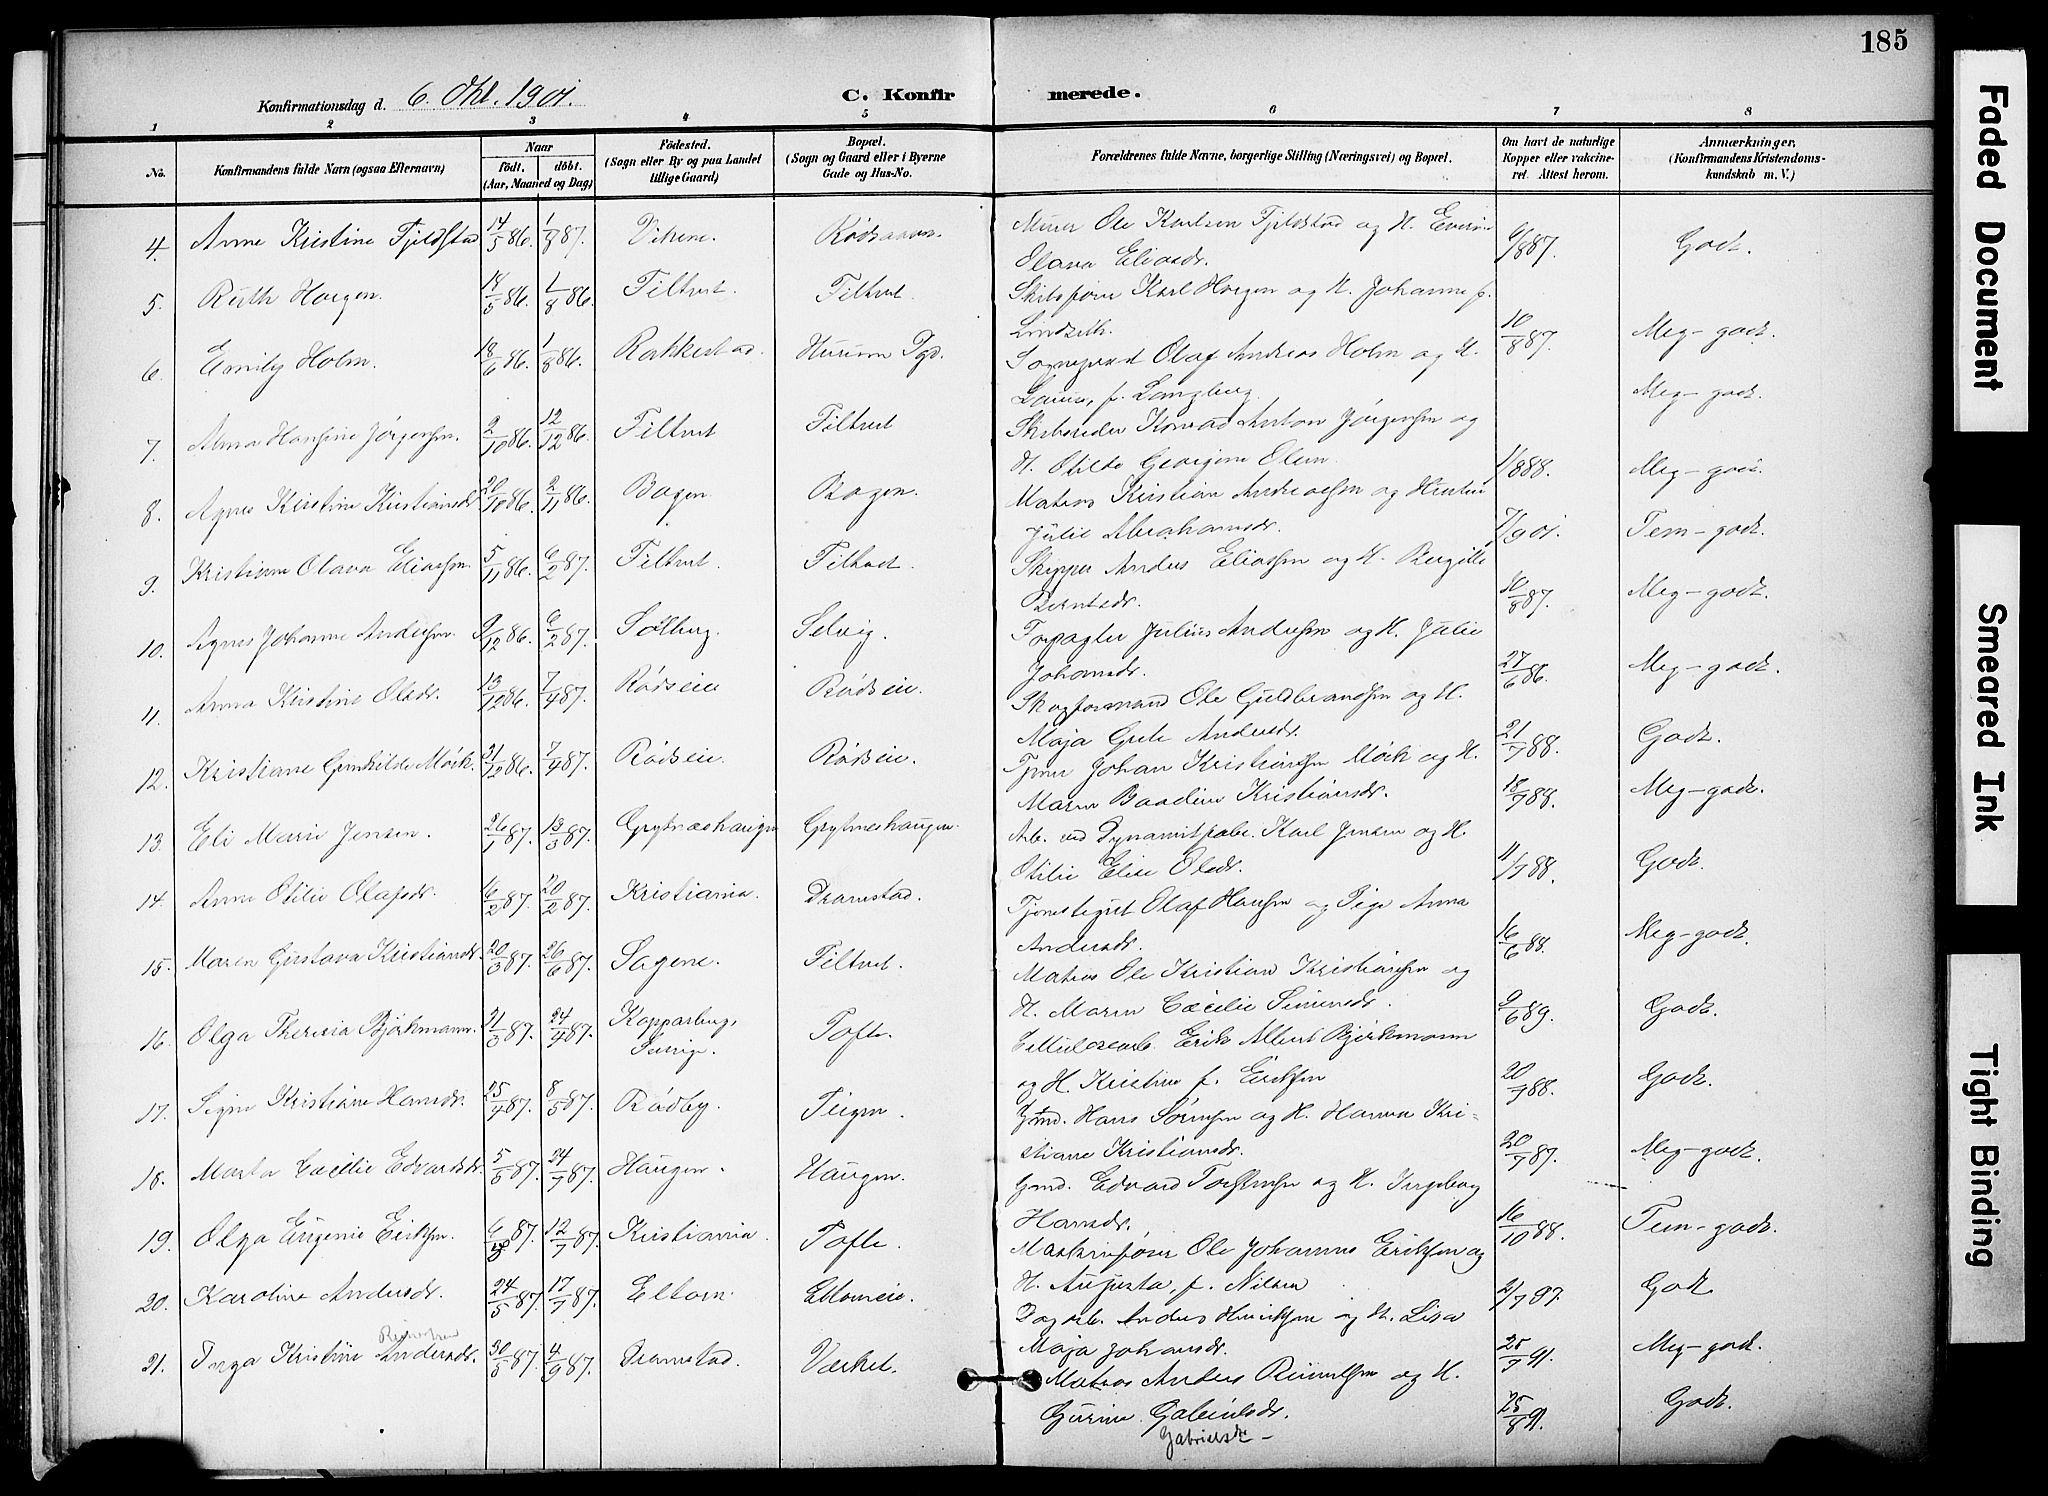 185
Konfirmationsdag d. 6. Okt. 1901.
C. Konfirmerede.
1 2 3 4 5 6 7 8
No. Konfirmandens fulde Navn (ogsaa Efternavn) Naar födt, döbt. (Aar, Maaned og Dag) Födested. (Sogn eller By og paa Landet tillige Gaard) Bopæl. (Sogn og Gaard eller i Byerne Gade og Hus-No. Forældrenes fulde Navne, borgerlige Stilling (Næringsvei) og Bopæl. Om havt de naturlige Kopper eller vakcineret. Attest herom. Anmærkninger, (Konfirmandens Kristendomskundskab m. V.)
4. Anne Kristine Fjeldstad 14/5 86. 1/8 87. Vikene. Rödsaasen Murer Ole Karlsen Fjeldstad og H.
Olava Eliasdr. 6/8 87. Godt.
5. Ruth Horgen. 18/5 86. 1/8 86. Filtvet Filtvet Skibsförer Karl Horgen og H. Johanne f.
Lindseth. 10/8 87. Meg-godt.
6. Emily Holm. 18/6 86. 1/8 86. Rakkestad. Hurum Pgd. Sogneprest Olaf Andreas Holm og H.
Louise, f. Langberg. Meg-godt.
7. Anna Hansine Jörgensen. 2/10 86. 12/12 86. Filtvet Filtvet Skibsreder Konrad Anton Jörgensen og
H. Otilde Georgine Olsen 1/8 88. Meg-godt.
8. Agnes Kristine Kristiansdr. 20/10 86. 2/11 86. Bogen. Bogen. Matros Kristian Andreassen og Hustru
Julie Abrahamsdr. 7/9 01. Tem-godt.
9. Kristiane Olava Eliassen. 5/11 86. 6/2 87. Filtvet. Filtvet. Skipper Anders Eliassen og H. Bergitte
Berntsdr. 10/8 87. Meg-godt.
10. Agnes Johanne Andersen. 9/12 86. 6/2 87. Sölberg. Selvig. Forpagter Julius Andersen og H. Julie
Johansdr. 27/6 86. Meg-godt.
11. Anna Kristine Olsdr. 13/12 86. 7/4 87. Rödseie Rödseie. Skogformand Ole Guldbrandsen og H.
Maja Grete Andersdr. 21/7 88. Godt.
12. Kristiane Gunhilde Mörk. 31/12 86. 7/4 87. Rödseie. Rödseie. Johan Kristiansen Mörk og H.
Maren Baadine Kristiansdr. 18/7 88. Meg-godt.
13. Eli Marie Jensen. 26/1 87. 13/3 87. Grytneshaugen Grytneshaugen. Arb. ved Dynamitfabr. Karl Jensen og H.
Otilie Elise Olsdr. 11/7 88. Godt.
14. Anna Otilie Olafsdr. 16/2 87. 20/2 87. Kristiania. Dramstad. Tjenestegut Olaf Hansen og Pige Anna
Andersdr. 16/6 88. Meg-godt.
15. Maren Gustava Kristiansdr. 20/3 87. 26/6 87. Sagene. Filtvet. Matros Ole Kristian Kristiansen og
H. Maren Cæcilie Simensdr. 9/6 89. Godt.
16. Olga Theresia Björkmann. 21/3 87. 24/4 87. Kopparberg, Sverige. Tofte. Cellulosearb. Erik Albert Björkmann
og H. Kristine f. Eriksen 20/7 88. Godt.
17. Signe Kristiane Hansdr. 25/4 87. 8/5 87. Rödby. Teigen. Gmd. Hans Sörensen og H. Hanna Kri-
stiane Kristiansdr. 20/7 87. Meg-godt.
18. Marta Cæcilie Edvardsdr. 5/5 87. 24/7 87. Haugen. Haugen. Gmd. Edvard Torstensen og H. Ingeborg
Hansdr. 16/10 88. Tem-godt.
19. Olga Eugenie Eriksen. 87. 12/7 87. Kristiania Tofte. Maskinförer Ole Johannes Eriksen og
H. Augusta, f. Nilsen 2/7 97. Godt
20. Karoline Andersdr. 24/5 87. 17/7 87. Eltorn. Eltorneie. Dagarb. Anders Henriksen og H. Lisa
Maja Johansdr. 25/7 91. Meg-godt.
21. Inga Kristine Andersdr. 30/5 87. 4/9 87. Dramstad. Værket. Matros Anders Reinertsen og H.
Gurine Gabrielsdr. 25/8 91. Godt.
Gabrielsdr -
Faded Document
Smeared Ink
Tight Binding